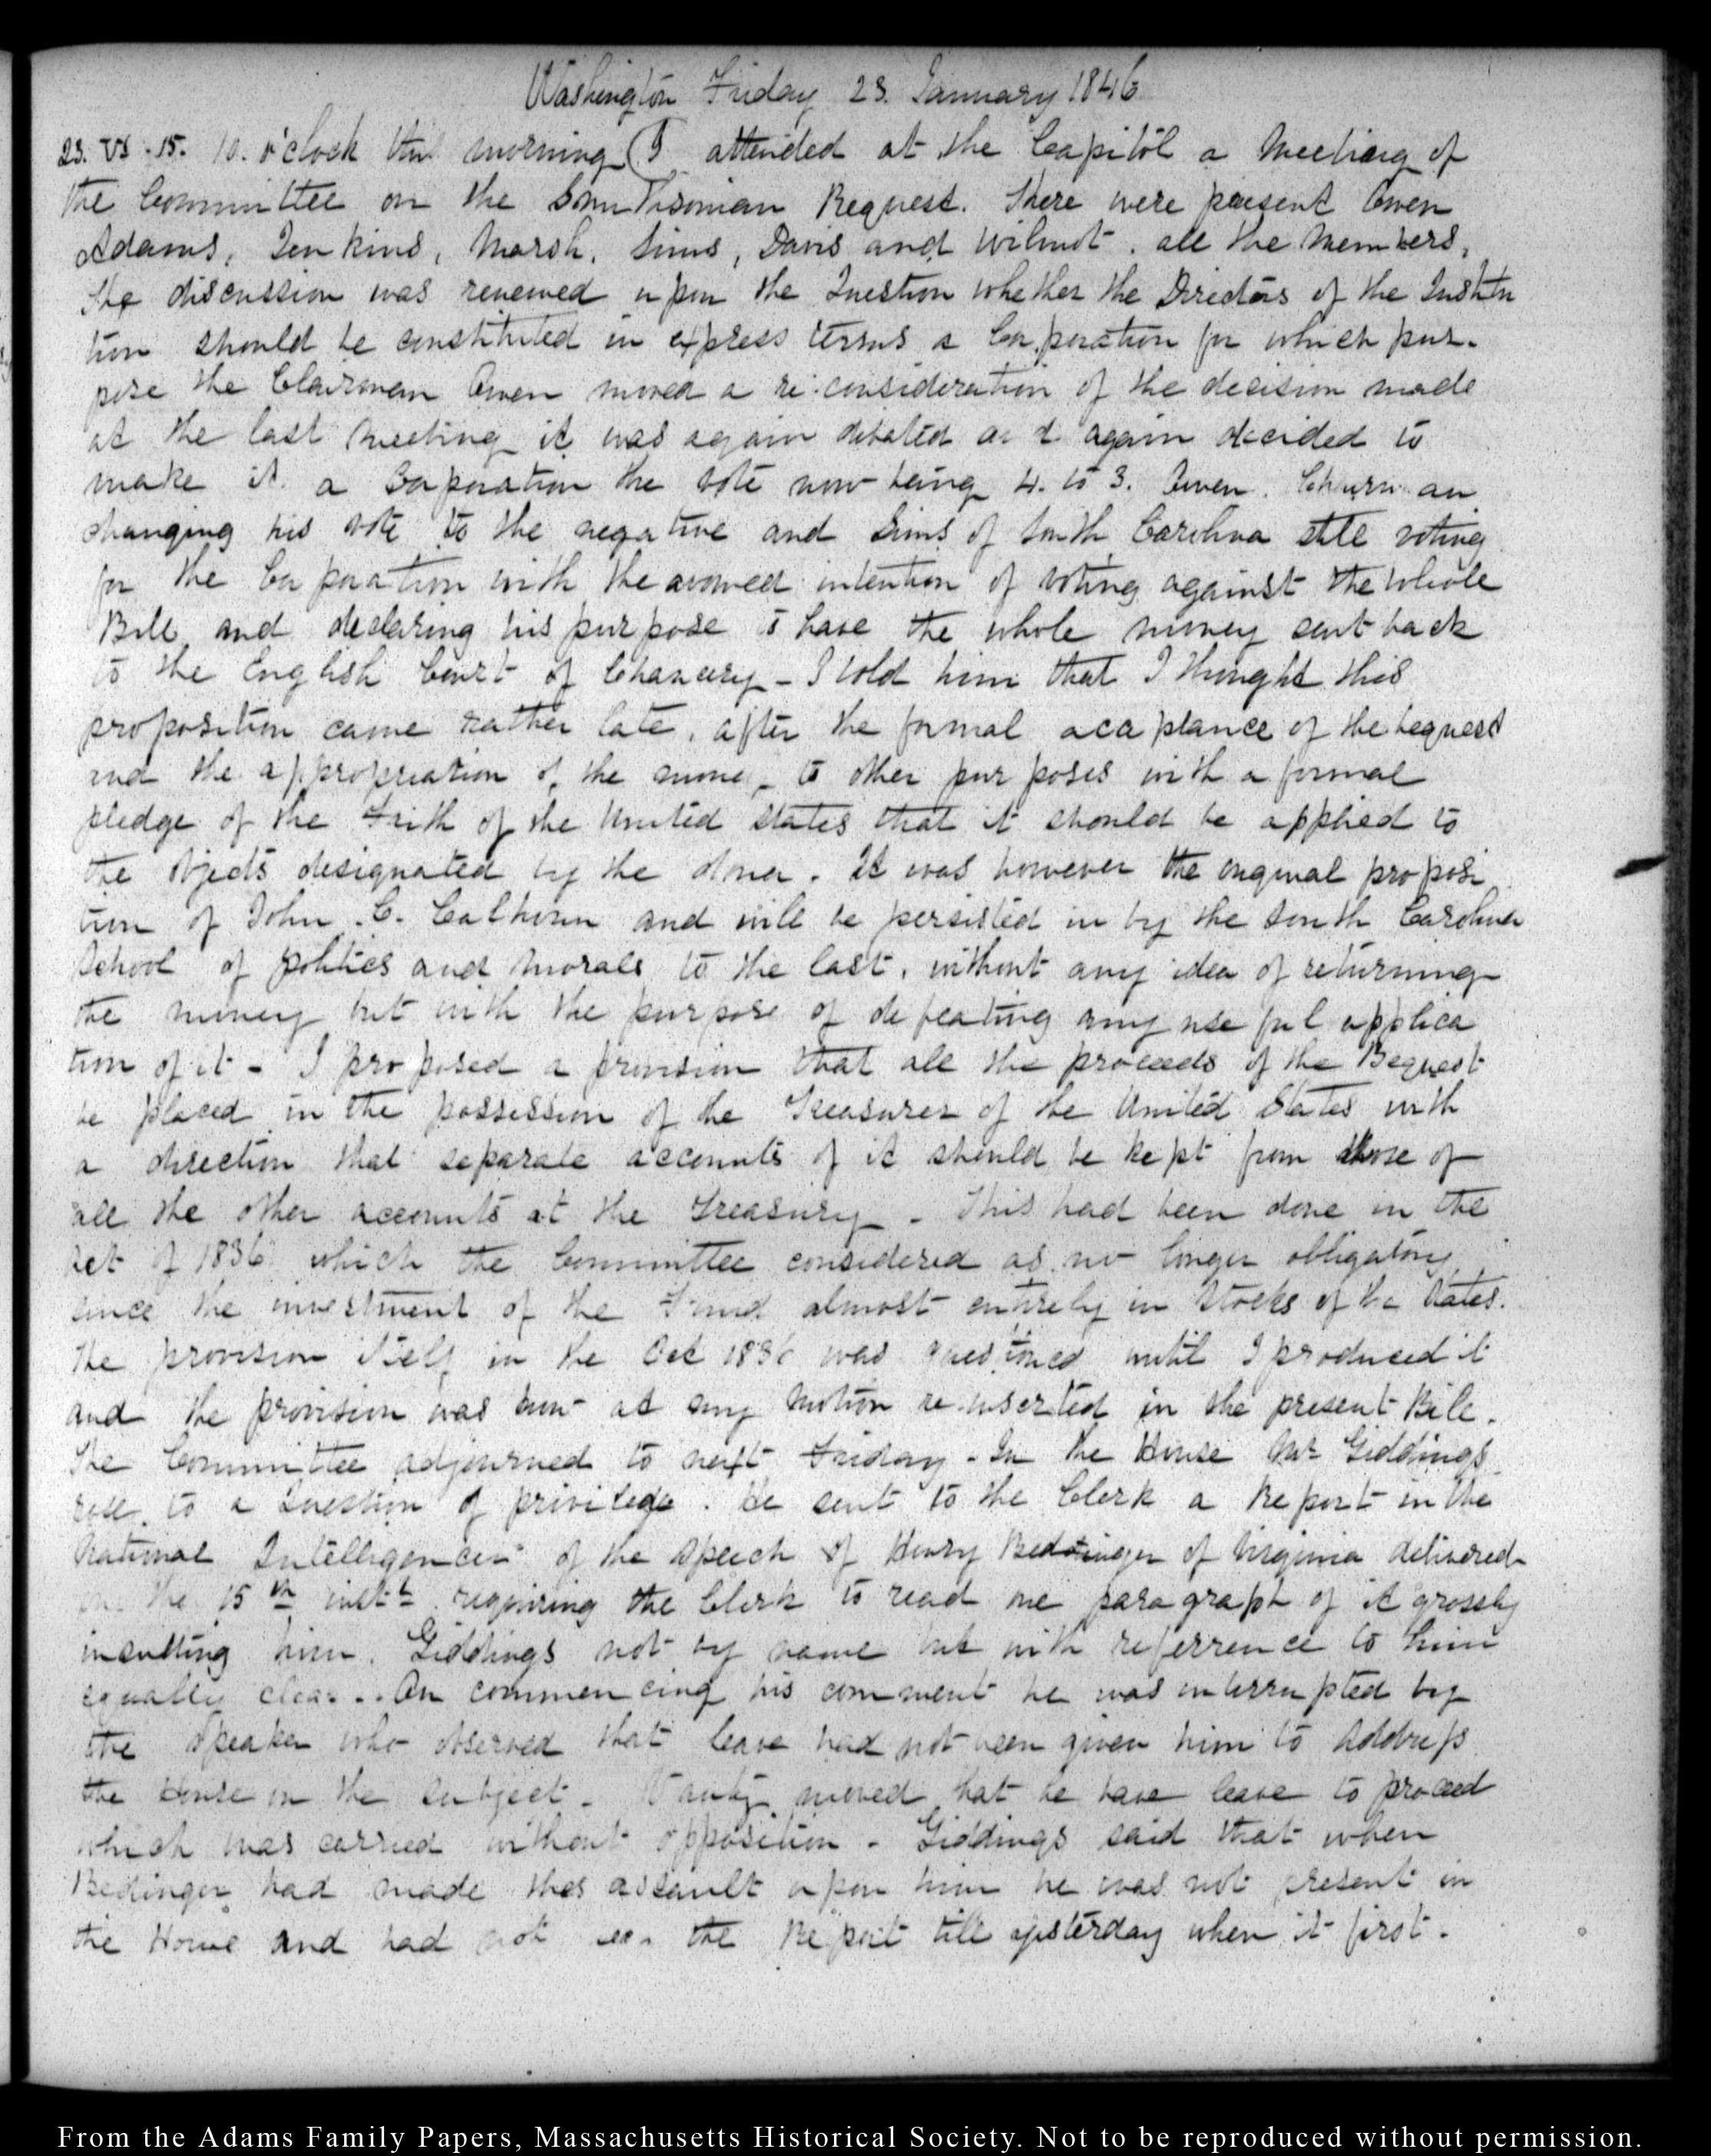 Washington Friday 23. January 1846
23. VI. 15. 10. o'clock this morning I attended at the Capitol a Meeting of
the Committee on the Smithsonian Bequest. There were present Owen
Adams, Jenkins, Marsh, Sims, Davis and Wilmot. all the Members,
The discussion was renewed upon the Question whether the Directors of the Institu
tion should be constituted in express terms a Corporation for which pur-
pose the Chairman Owen moved a re-consideration of the decision made
at the last Meeting it was again debated and again decided to
make it a Corporation the vote now being 4. to 3. Owen. Chairman
changing his vote to the negative and Sims of South Carolina still voting
for the Corporation with the avowed intention of voting against the whole
Bill and declaring his purpose to have the whole money sent back
to the English Court of Chancery - I told him that I thought this
proposition came rather late, after the formal acceptance of the bequest
and the appropriation of the money to other purposes with a formal
pledge of the Faith of the United States that it should be applied to
the objects designated by the donor. It was however the original proposi
tion of John. C. Calhoun and will be persisted in by the South Carolina
School of politics and morals to the last, without any idea of returning
the money but with the purpose of defeating any useful applica
tion of it - I proposed a provision that all the proceeds of the Bequest
be placed in the possession of the Treasurer of the United States with
a direction that separate accounts of it should be kept from those of
all the other accounts at the Treasury - This had been done in the
Act of 1836 which the Committee considered as no longer obligatory
since the investment of the Fund almost entirely in Stocks of the States.
The provision itself in the Act 1836 was questioned until I produced it
and the provision was now at my motion re-inserted in the present Bill.
The Committee adjourned to next Friday - In the House Mr Giddings
rose to a Question of privilege. He sent to the Clerk a Report in the
National Intelligencer of the Speech of Henry Bedinger of Virginia delivered
on the 15th instt. requiring the Clerk to read one paragraph of it grossly
insulting him. Giddings not by name but with referrence to him
equally clear. On commencing his comment he was interrupted by
the Speaker who observed that leave had not been given him to Address
the House on the Subject - moved that he have leave to proceed
which was carried without opposition - Giddings said that when
Bedinger had made this assault upon him he was not present in
the House and had not seen the Report till yesterday when it first.
From the Adams Family Papers, Massachusetts Historical Society. Not to be reproduced without permission.